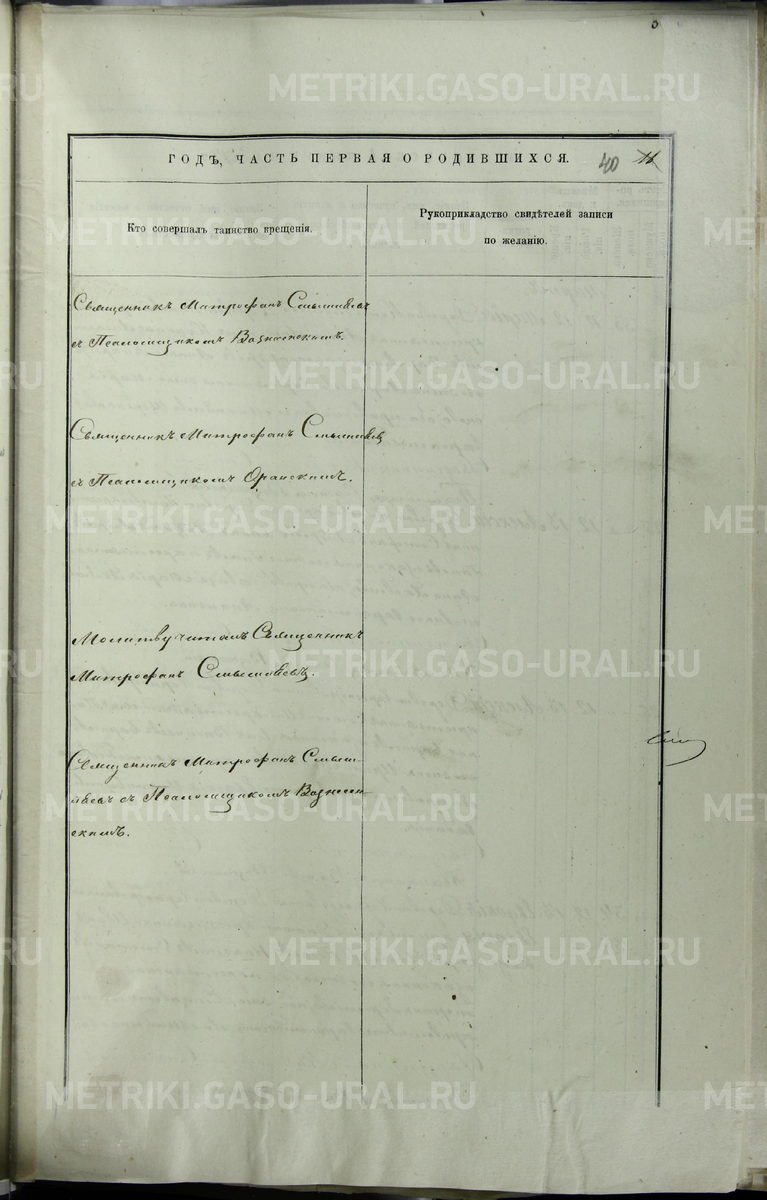 ГОДЪ, ЧАСТЬ ПЕРВАЯ О РОДИВШИХСЯ.
40
Кто совершалъ таинство крещенія.
Рукоприкладство свидѣтелей записи
по желанію.
Священникъ Митрофанъ
съ Псаломщикомъ Вознесенскимъ.
Священникъ Митрофанъ
съ Псаломщикомъ Оранскимъ.
Молитву читалъ Священникъ
Митрофанъ
Священникъ Митрофанъ
съ Псаломщикомъ Вознесен-
скимъ.
METRIKI.GASO-URAL.RU